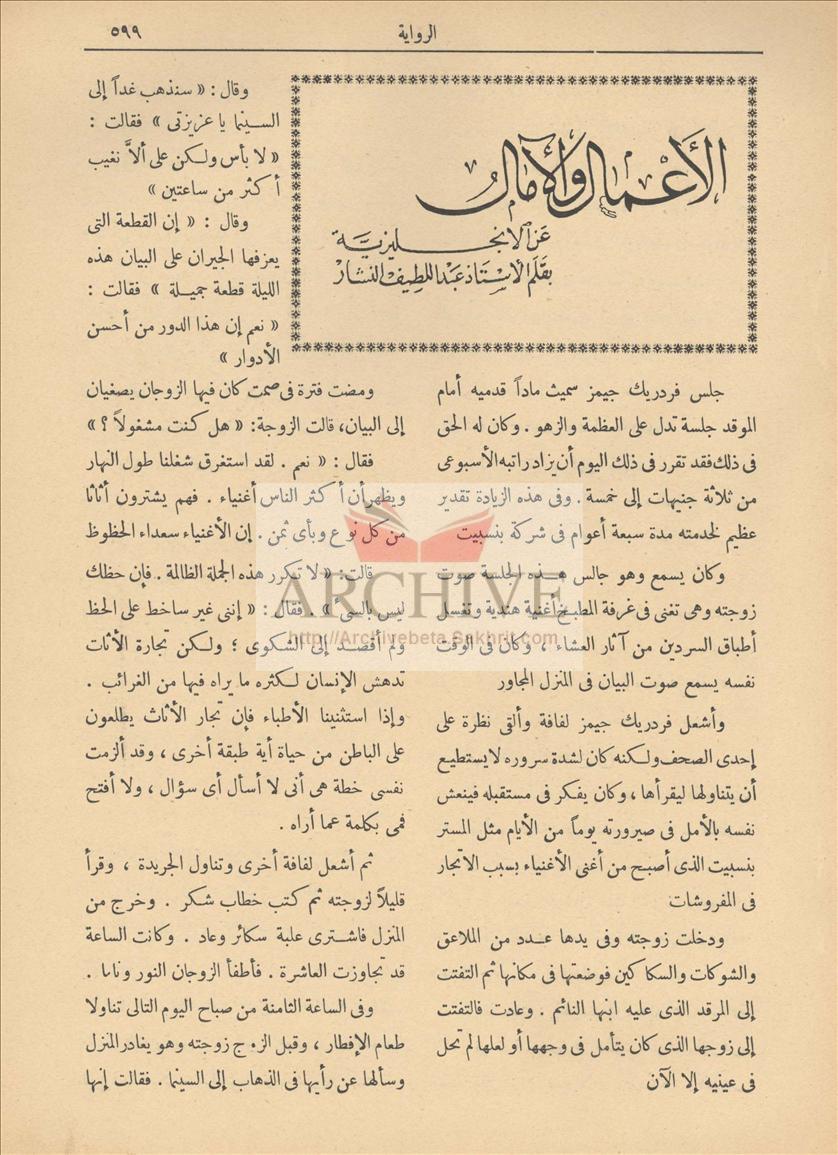 الرواية
٥٩٩
الأعمال والآمال
عن الانجليزية
بقلم الأستاذ عبد اللطيف النشار
جلس فردريك جيمز سميث ماداً قدميه أمام
الموقد جلسة تدل على العظمة والزهو . وكان له الحق
فى ذلك فقد تقرر فى ذلك اليوم أن يزاد راتبه الأسبوعى
من ثلاثة جنيهات إلى خمسة . وفى هذه الزيادة تقدير
عظيم لخدمته مدة سبعة أعوام فى شركة بنسبيت
وكان يسمع وهو جالس هذه الجلسة صوت
زوجته وهى تغنى فى غرفة المطبخ أغنية هندية وتغسل
أطباق السردين من آثار العشاء ، وكان فى الوقت
نفسه يسمع صوت البيان فى المنزل المجاور
وأشعل فردريك جيمز لفافة وألقى نظرة على
إحدى الصحف ولكنه كان لشدة سروره لا يستطيع
أن يتناولها ليقرأها ، وكان يفكر فى مستقبله فينعش
نفسه بالأمل فى صيرورته يوماً من الأيام مثل المستر
بنسبيت الذى أصبح من أغنى الأغنياء بسبب الاتجار
فى المفروشات
ودخلت زوجته وفى يدها عدد من الملاعق
والشوكات والسكاكين فوضعتها فى مكانها ثم التفتت
إلى المرقد الذى عليه ابنها النائم . وعادت فالتفتت
إلى زوجها الذى كان يتأمل فى وجهها أو لعلها لم تحل
فى عينيه إلا الآن
وقال : « سنذهب غداً إلى
السينما يا عزيزتى » فقالت :
« لا بأس ولكن على ألاّ نغيب
أكثر من ساعتين »
وقال : « إن القطعة التى
يعزفها الجيران على البيان هذه
الليلة قطعة جميلة » فقالت :
« نعم إن هذا الدور من أحسن
الأدوار »
ومضت فترة فى صمت كان فيها الزوجان يصغيان
إلى البيان، قالت الزوجة: « هل كنت مشغولاً ؟ »
فقال : « نعم . لقد استغرق شغلنا طول النهار
ويظهر أن أكثر الناس أغنياء . فهم يشترون أثاثا
من كل نوع وبأى ثمن . إن الأغنياء سعداء الحظوظ
قالت: « لا تكرر هذه الجملة الظالمة . فإن حظك
ليس بالسىء » . فقال : « إننى غير ساخط على الحظ
ولم أقصد إلى الشكوى ؛ ولكن تجارة الأثاث
تدهش الإنسان لكثره ما يراه فيها من الغرائب .
وإذا استثنينا الأطباء فإن تجار الأثاث يطلعون
على الباطن من حياة أية طبقة أخرى ، وقد ألزمت
نفسى خطة هى أنى لا أسأل أى سؤال ، ولا أفتح
فمى بكلمة عما أراه .
ثم أشعل لفافة أخرى وتناول الجريدة ، وقرأ
قليلاً لزوجته ثم كتب خطاب شكر . وخرج من
المنزل فاشترى علبة سكائر وعاد . وكانت الساعة
قد تجاوزت العاشرة . فأطفأ الزوجان النور وناما .
وفى الساعة الثامنة من صباح اليوم التالى تناولا
طعام الإفطار ، وقبل الزوج زوجته وهو يغادر المنزل
وسألها عن رأيها فى الذهاب إلى السينما . فقالت إنها
ARCHIVE
http://Archivebeta.Sakhrit.com